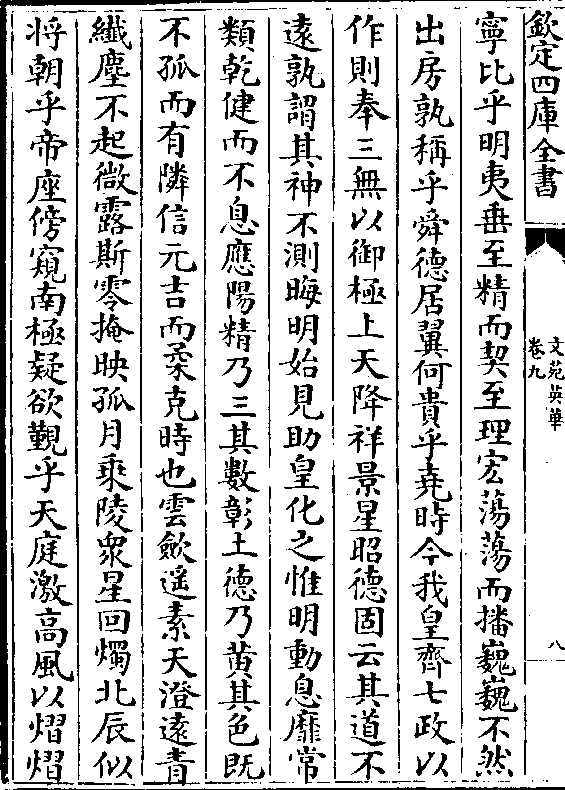 欽定四庫全書
文苑英華
卷九
八
寧比乎明夷垂至精而契至理宏蕩蕩而播巍巍不然
出房孰稱乎舜德居翼何貴乎堯時今我皇齊七政以
作則奉三無以御極上天降祥景星昭德固云其道不
遠孰謂其神不測晦明始見助皇化之惟明動息靡常
類乾健而不息應陽精乃三其數彰土德乃黃其色既
不孤而有隣信元吉而柔克時也雲歛遥素天澄遠青
纖塵不起微露斯零掩映孤月乘陵衆星回燭北辰似
将朝乎帝座傍窺南極疑欲覲乎天庭激高風以熠熠